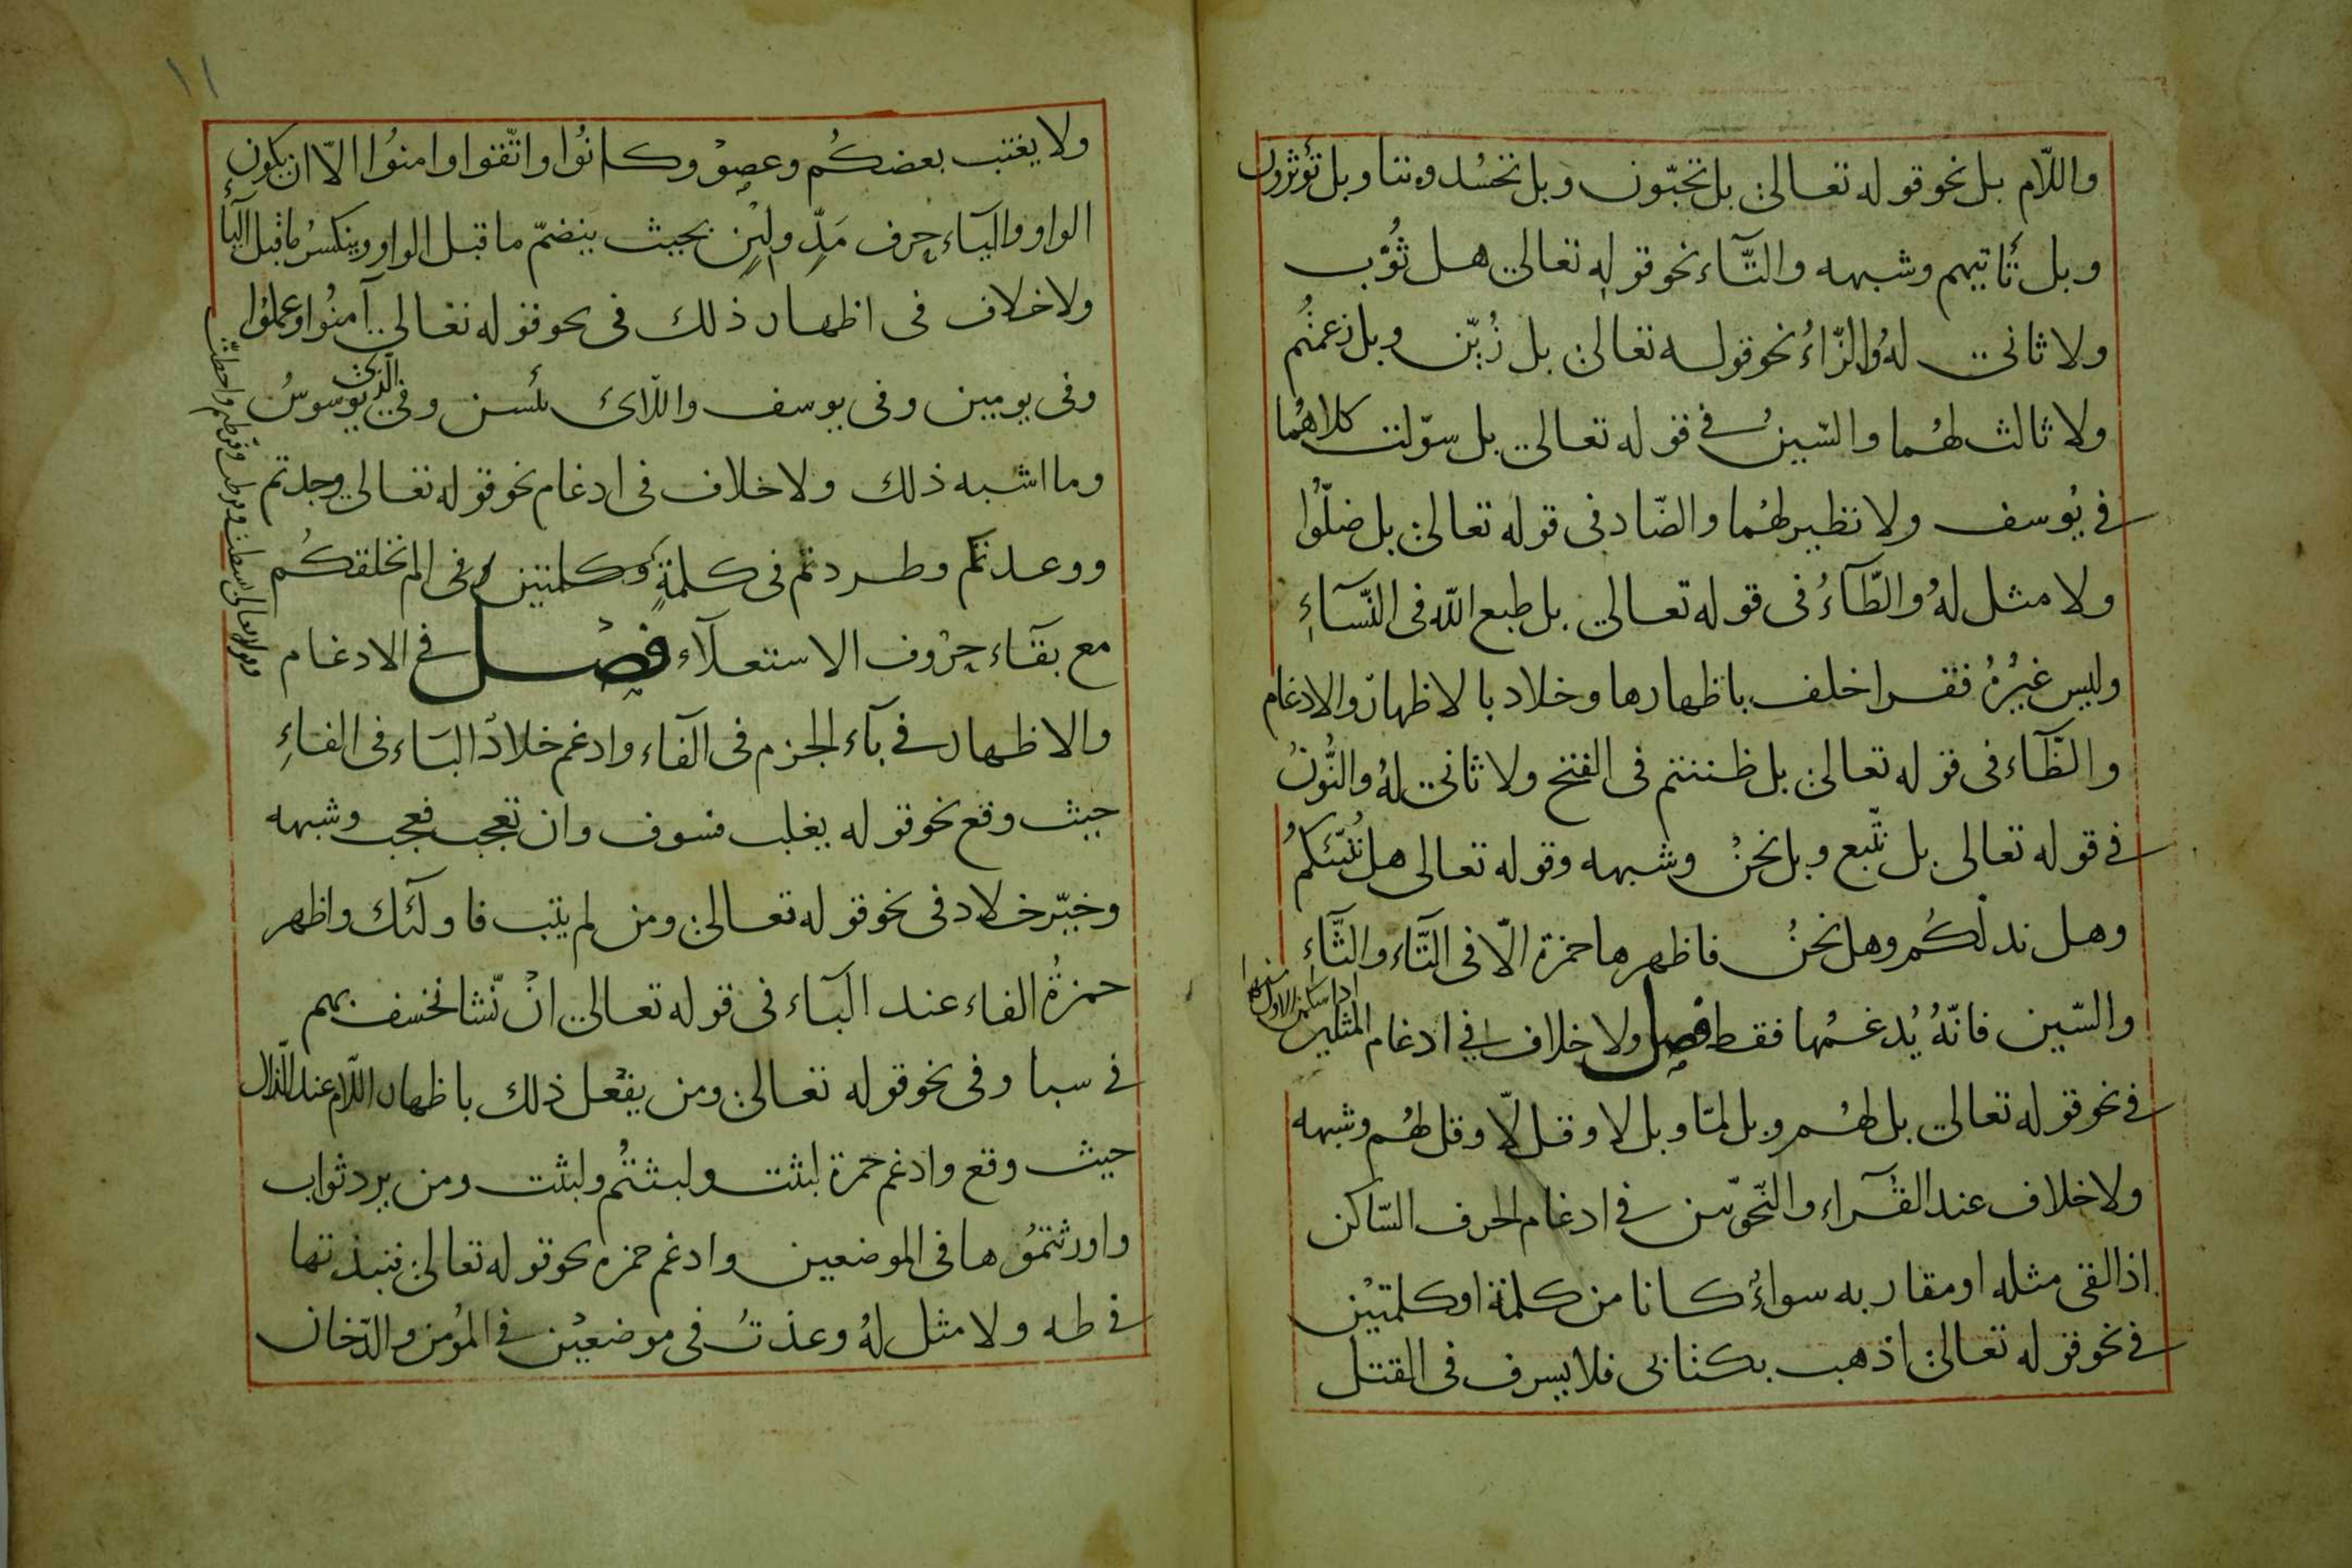 واللّام بل نحو قوله تعالى بل تحبّون وبل تحسُدوننا وبل تؤثرون
وبل تأتيهم وشبهه والثّآء نحو قولِه تعالى هل ثُوّب
ولا ثانى لهُ والزّاءُ نحو قوله تعالى بل زُيّن وبل زعمتُم
ولا ثالث لهُما والسّينُ فى قوله تعالى بل سوّلت كلاهُما
فى يُوسف ولا نظير لهُما والضّاد فى قوله تعالى بل ضلّوُا
ولا مثل لهُ والطّآءُ فى قوله تعالى بل طبع اللّه فى النّسآءِ
وليس غيرُهُ فقرا خلف باظهارها وخلاد بالاظهار والادغام
والظّآء فى قوله تعالى بل ظننتم فى الفتح ولا ثانى لهُ والنُّونُ
فى قوله تعالى بل نتّبع وبل نحنُ وشبهه وقوله تعالى هل نُنبّئكمُ
وهل ندلّكُم وهل نحنُ فاظهرها حمزة الّا فى التّاء والثّآءِ
والسّين فانّهُ يُدغمُها فقط فصل ولا خلاف فى ادغام المثلين
اذا سكن الاول منهما
فى نحو قوله تعالى بل لهُم وبل لمّا وبل لا وقل لّا وقل لهُم وشبهه
ولا خلاف عند القُرآء والنّحويّين فى ادغام الحرف السّاكن
اذا لقى مثله او مقاربه سواءٌ كانا من كلمة او كلمتيْن
فى نحو قوله تعالى اذهب بكتابى فلا يسرف فى القتل
١١
ولا يغتب بعضكُم وعصوْ وكانُوا واتّقوا وامنوُا الّا ان يكون
الواو واليآء حرف مَدّ ولِيْنٍ بحيث ينضمّ ما قبل الواو وينكسرُ ما قبل اليآء
ولا خلاف فى اظهار ذلك فى نحو قوله تعالى آمنُوا وعملوُا
وفى يومين وفى يوسف واللّائ يئسن وفى الّذى يُوسوسُ
وما اشبه ذلك ولا خلاف فى ادغام نحو قوله تعالى وجدتم
ووعدتكم وطردتم فى كلمةٍ وكلمتين وفى الم نخلقكُم
مع بقآء حرُوف الاستعلآء فصْل فى الادغام
والاظهار فى بآء الجزم فى الفآء وادغم خلادُ البآء فى الفاءِ
حيث وقع نحو قوله يغلب فسوف وان تعجب فعجب وشبهه
وخيّر خلاد فى نحو قوله تعالى ومن لم يتب فاولئك واظهر
حمزةُ الفاء عند البآء فى قوله تعالى انْ نّشا نخسف بهم
فى سبا وفى نحو قوله تعالى ومن يفْعل ذلك باظهار اللّام عند الذّال
حيث وقع وادغم حمزة لبثت ولبثتُم ولبثت ومن يرد ثواب
واورثتمُوها فى الموضعين وادغم حمزه نحو قوله تعالى فنبذتها
فى طه ولا مثل لهُ وعذتُ فى موضعيْن فى المُومن والدّخان